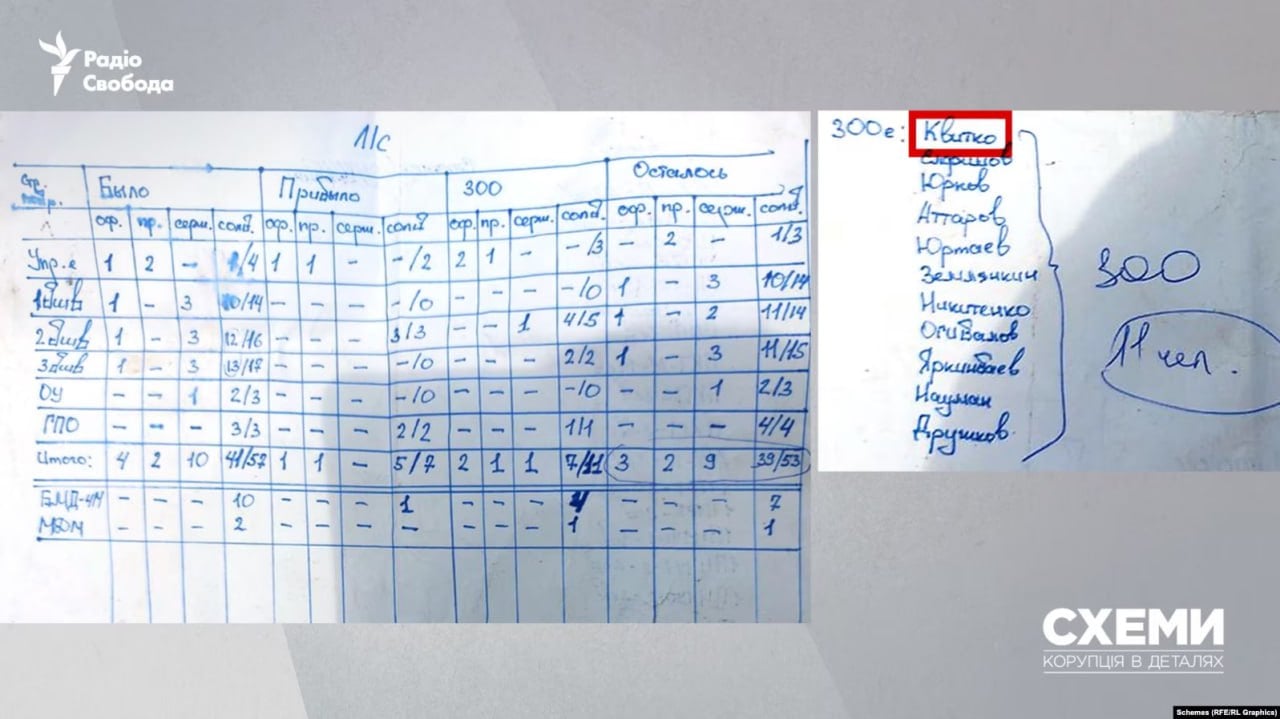 Радіо
Свобода
Л/с
Было Прибыло 300 Осталось
оф. пр. серж. солд. оф. пр. серж. солд оф. пр. серж. солд. оф. пр. серж. солд.
Упр-е 1 2 – 1/4 1 1 – -/2 2 1 – -/3 – 2 – 1/3
1 1 – 3 10/14 – – – -/0 – – – -/0 1 – 3 10/14
2 1 – 3 12/16 – – – 3/3 – – 1 4/5 1 – 2 11/14
3 1 – 3 13/17 – – – -/0 – – – 2/2 1 – 3 11/15
ОУ – – 1 2/3 – – – -/0 – – – -/0 – – 1 2/3
ГПО – – – 3/3 – – – 2/2 – – – 1/1 – – – 4/4
Итого: 4 2 10 41/57 1 1 – 5/7 2 1 1 7/11 3 2 9 39/53
БМД-4М – – – 10 – – – 1 – – – 4 – – – 7
– – – 2 – – – – – – – 1 – – – 1
300е: Квитко
Юрков
Аттаров
Юртаев
Землянкин
Никитенко
Огивалов
Яркинбаев
Науман
Друшков
300
11 чел.
СХЕМИ
КОРУПЦІЯ В ДЕТАЛЯХ
Schemes (RFE/RL Graphics)